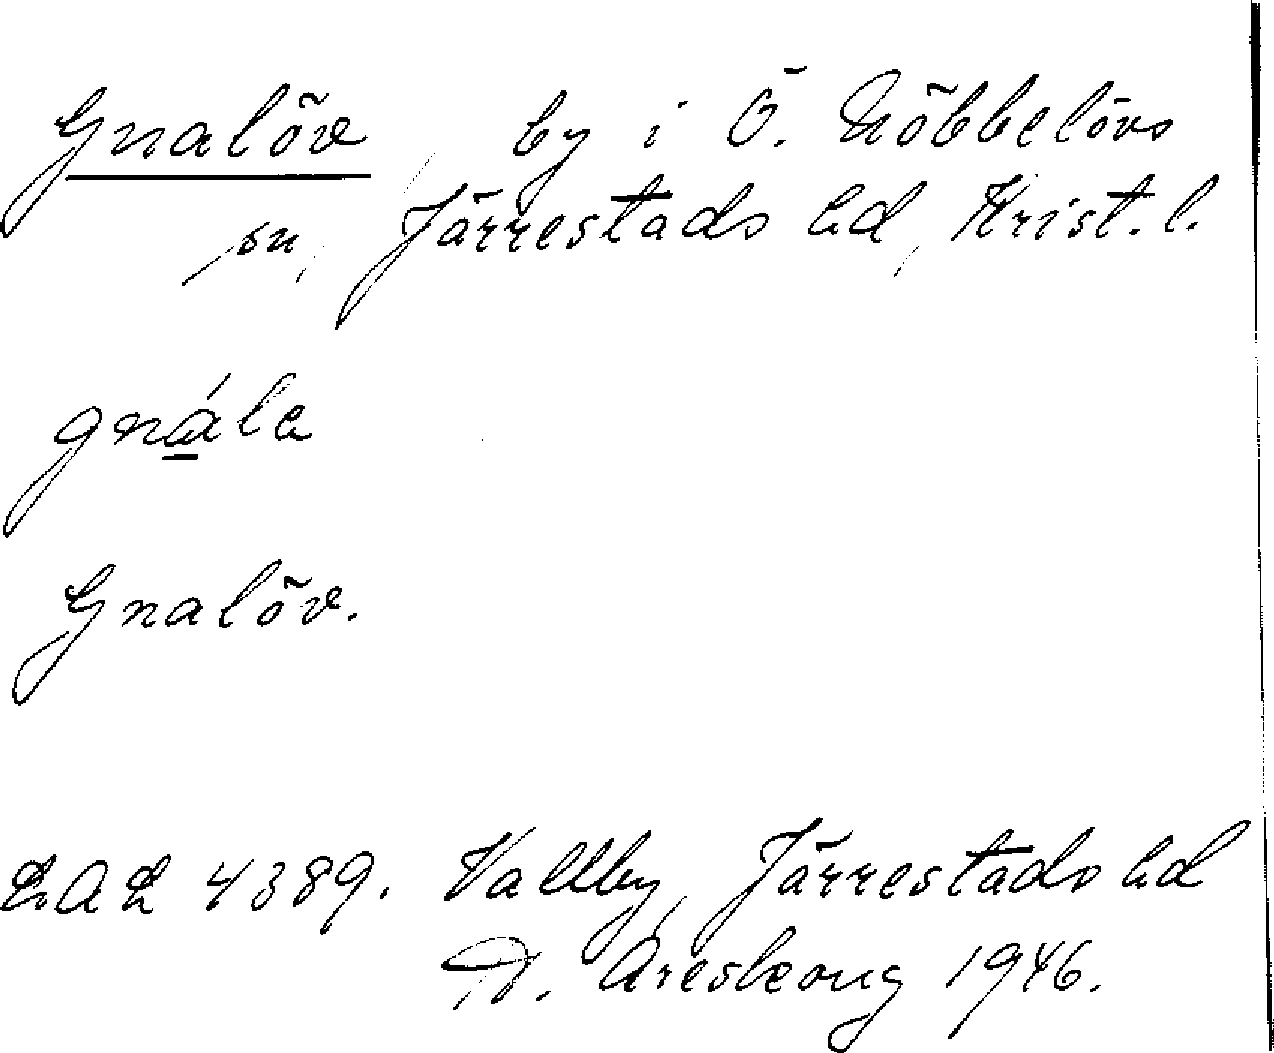 Gnalöv, by i Ö. Nöbbelövs
sn, Järrestads hd, Krist. l.
gnála
Gnalöv.
LAL 4389. Vallby, Järrestads hd
D. Areskoug 1946.